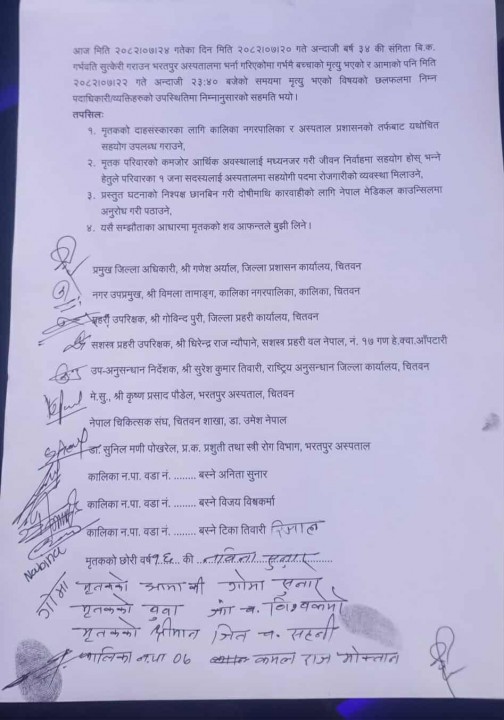 आज मिति २०८२।०७।२४ गतेका दिन मिति २०८२।०७।२० गते अन्दाजी बर्ष ३४ की संगिता बि.क.
गर्भवति सुत्केरी गराउन भरतपुर अस्पतालमा भर्ना गरिएकोमा गर्भमै बच्चाको मृत्यु भएको र आमाको पनि मिति
२०८२।०७।२२ गते अन्दाजी २३:४० बजेको समयमा मृत्यु भएको विषयको छलफलमा निम्न
पदाधिकारी/व्यक्तिहरुको उपस्थितिमा निम्नानुसारको सहमति भयो।
तपसिलः
१. मृतकको दाहसंस्कारका लागि कालिका नगरपालिका र अस्पताल प्रशासनको तर्फबाट यथोचित
सहयोग उपलब्ध गराउने,
२. मृतक परिवारको कमजोर आर्थिक अवस्थालाई मध्यनजर गरी जीवन निर्वाहमा सहयोग होस् भन्ने
हेतुले परिवारका १ जना सदस्यलाई अस्पतालमा सहयोगी पदमा रोजगारीको व्यवस्था मिलाउने,
३. प्रस्तुत घटनाको निश्पक्ष छानबिन गरी दोषीमाथि कारवाहीको लागि नेपाल मेडिकल काउन्सिलमा
अनुरोध गरी पठाउने,
४. यसै सम्झौताका आधारमा मृतकको शव आफन्तले बुझी लिने।
प्रमुख जिल्ला अधिकारी, श्री गणेश अर्याल, जिल्ला प्रशासन कार्यालय, चितवन
नगर उपप्रमुख, श्री विमला तामाङ्ग, कालिका नगरपालिका, कालिका, चितवन
प्रहरी उपरिक्षक, श्री गोविन्द पुरी, जिल्ला प्रहरी कार्यालय, चितवन
सशस्त्र प्रहरी उपरिक्षक, श्री धिरेन्द्र राज न्यौपाने, सशस्त्र प्रहरी वल नेपाल, नं. १७ गण हे.क्वा.आँपटारी
उप-अनुसन्धान निर्देशक, श्री सुरेश कुमार तिवारी, राष्ट्रिय अनुसन्धान जिल्ला कार्यालय, चितवन
मे.सु., श्री कृष्ण प्रसाद पौडेल, भरतपुर अस्पताल, चितवन
नेपाल चिकित्सक संघ, चितवन शाखा, डा. उमेश नेपाल
डा. सुनिल मणी पोखरेल, प्र.क. प्रशुती तथा स्त्री रोग विभाग, भरतपुर अस्पताल
कालिका न.पा. वडा नं. ........ बस्ने अनिता सुनार
कालिका न.पा. वडा नं. ........ बस्ने विजय विश्वकर्मा
कालिका न.पा. वडा नं. ........ बस्ने टिका तिवारी रिजाल
मृतकको छोरी वर्ष १६ की नविना सुनार
Nabina
गोमा
मृतकको आमा श्री गोमा सुनार
मृतकको बुवा विश्वकर्मा
मृतकको श्रीमान जित ब. सहनी
कालिका न.पा ०६ कमल राज मोक्तान